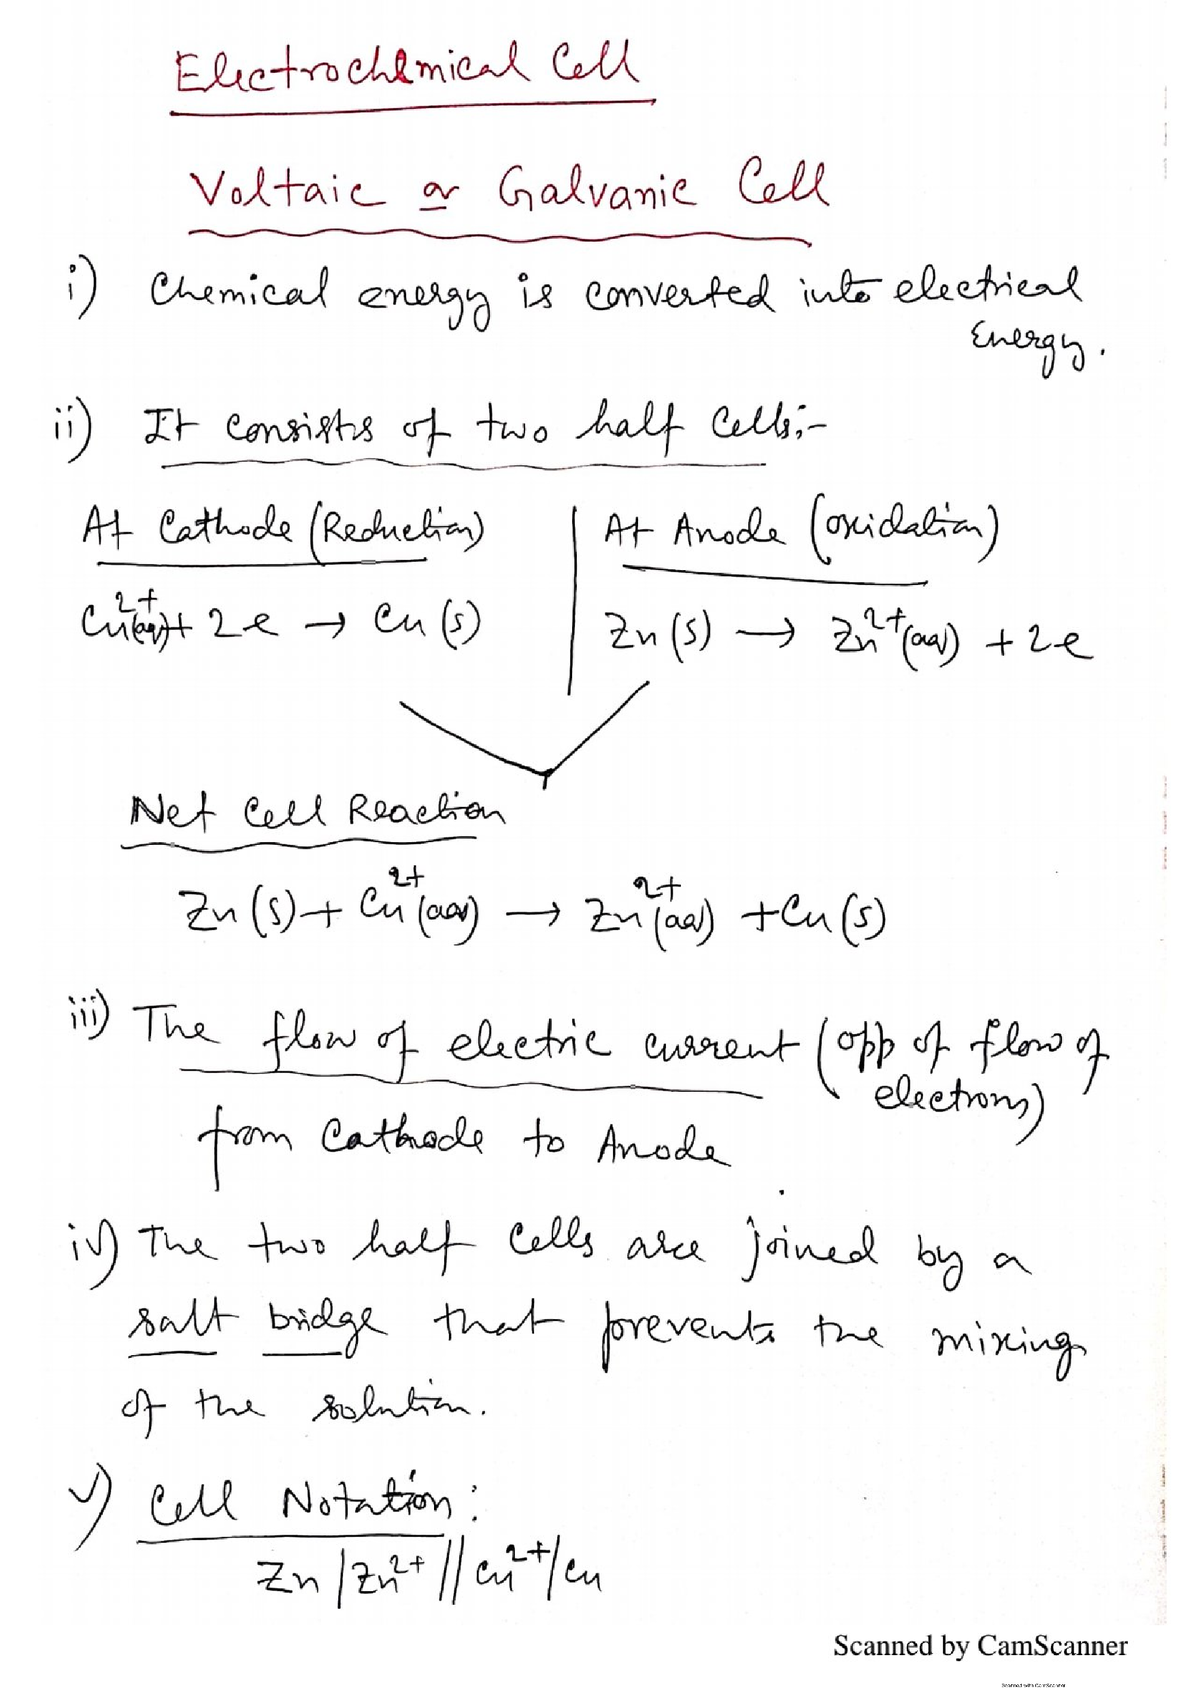 Electrochemical Cell
Voltaic or Galvanic Cell
i) Chemical energy is converted into electrical
Energy.
ii) It consists of two half Cells:-
At Cathode (Reduction) | At Anode (oxidation)
Cu²⁺(aq) + 2e → Cu (s) | Zn (s) → Zn²⁺(aq) + 2e
Net Cell Reaction
Zn (s) + Cu²⁺(aq) → Zn²⁺(aq) + Cu (s)
iii) The flow of electric current (opp of flow of
electrons)
from Cathode to Anode
iv) The two half Cells are joined by a
salt bridge that prevents the mixing
of the solution.
v) Cell Notation:
Zn | Zn²⁺ || Cu²⁺ / Cu
Scanned by CamScanner
Scanned with CamScanner